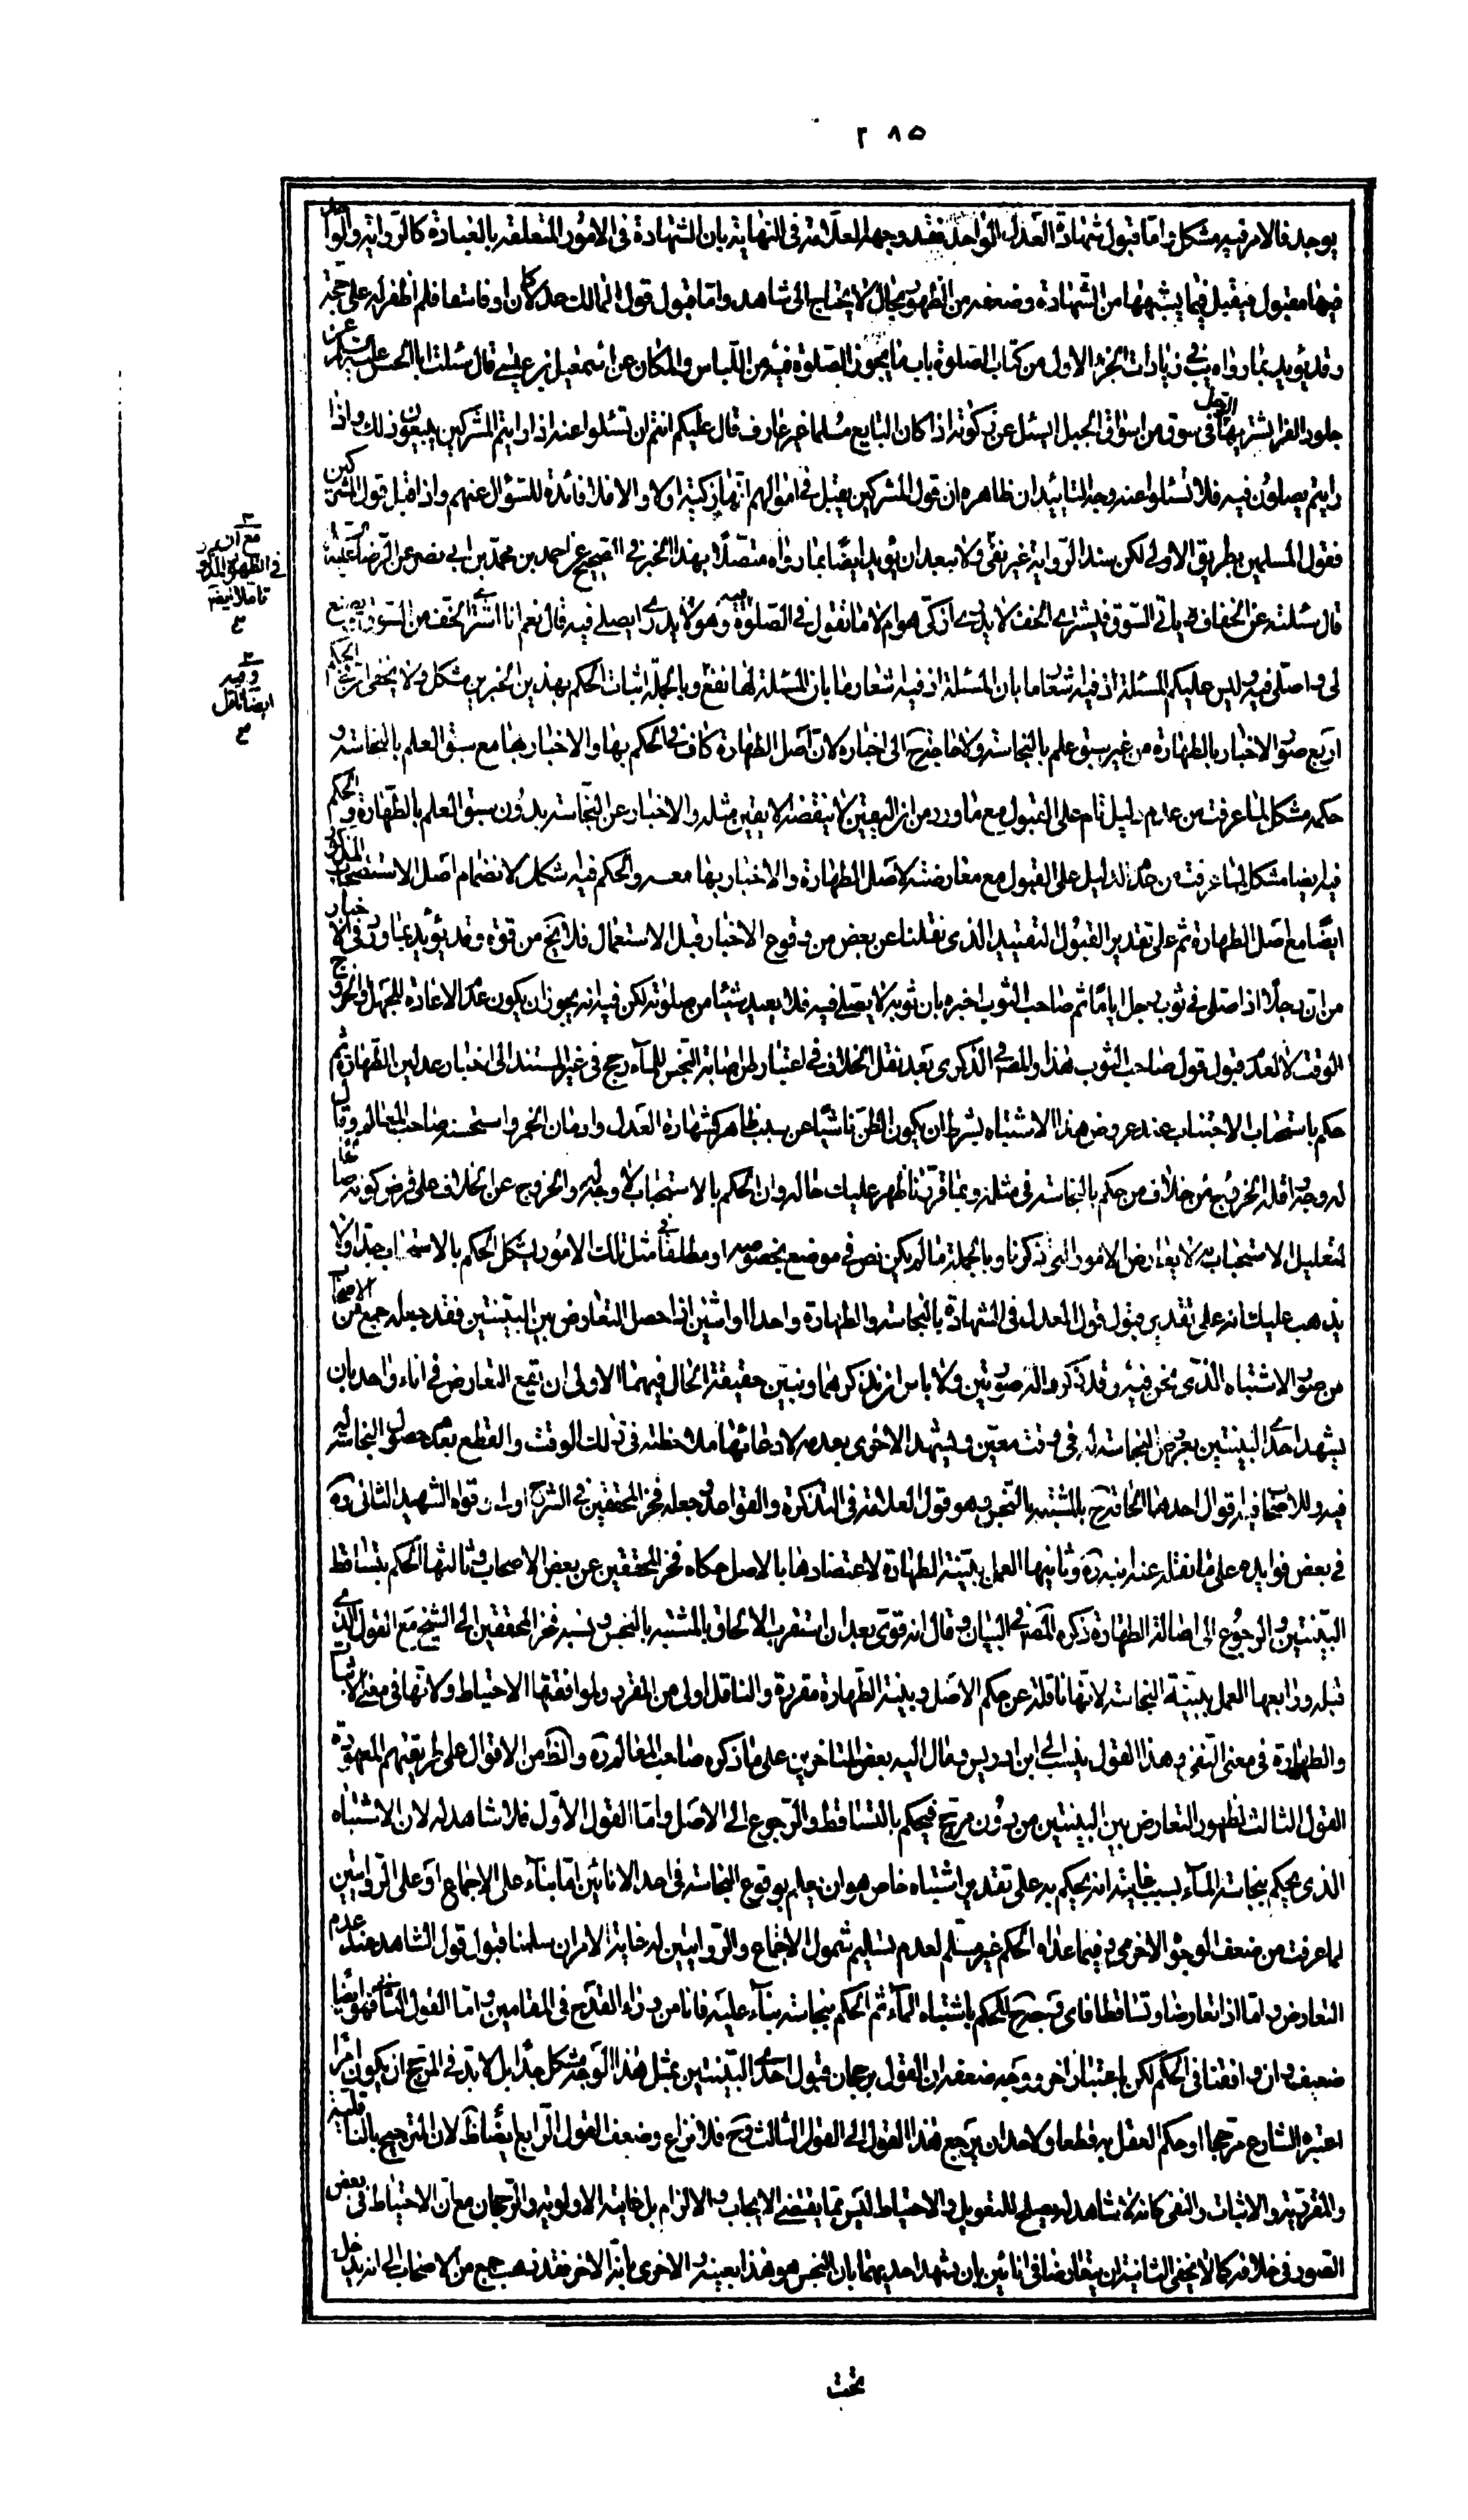 ٢٨٥
يوجد فالامر فيه مشكل واما قبول شهادة العدل الواحد فقد وجهه العلامة في النهاية بان الشهادة في الامور المتعلقة بالعبادة كالرواية والواحد
فيها مقبول فيقبل فيما يشبهها من الشهادة وضعفه من الظهور بحال لا يحتاج الى شاهد واما قبول قول المالك عدلا كان او فاسقا فلم اظفر له على حجة
وقد يؤيد بما رواه يب في زيادات الجزء الاول من كتاب الصلوة باب ما يجوز الصلوة فيه من اللباس والمكان عن اسمعيل بن عيسى قال سئلت ابا الحسن عليه السلام عن
جلود الفرا يشتريها الرجل في سوق من اسواق الجبل ايسئل عن ذكوته اذا كان البايع مسلما غير عارف قال عليكم انتم ان تسئلوا عنه اذا رايتم المشركين يبيعون ذلك واذا
رايتم يصلون فيه فلا تسئلوا عنه وجه التاييد ان ظاهره ان قول المشركين يقبل في اموالهم انها ذكية او لا والا فلا فائدة للسؤال عنهم واذا قبل قول المشركين
فقول المسلمين بطريق الاولى لكن سند الرواية غير نقي ولا يبعد ان يؤيد ايضا بما رواه متصلا بهذا الخبر في الصحيح عن احمد بن محمد بن ابي نصر عن الرضا عليه السلام
قال سئلته عن الخفاف ياتي السوق فيشتري الخف لا يدري اذكي هو ام لا ما تقول في الصلوة فيه وهو لا يدري ايصلي فيه قال نعم انا اشتري الخف من السوق ويصنع
لي واصلي فيه وليس عليكم المسئلة اذ فيه شعار ما بان المسئلة اذ فيه شعار ما بان المسئلة لها نفع وبالجملة اثبات الحكم بهذين الخبرين مشكل ولا يخفى ان في الحكم
اربع صور الاخبار بالطهارة من غير سبق علم بالنجاسة ولا حاجة ح الى اخباره لان اصل الطهارة كاف في الحكم بها والاخبار بها مع سبق العلم بالنجاسة و
حكمه مشكل لما عرفت من عدم دليل تام على القبول مع ما ورد من ان اليقين لا ينقضه الا يقين مثله والاخبار عن النجاسة بدون سبق العلم بالطهارة والحكم
فيه ايضا مشكل لما عرفت من عدم الدليل على القبول مع معارضته لاصل الطهارة والاخبار بها معه والحكم فيه اشكل لانضمام اصل الاستصحاب المذكور
ايضا مع اصل الطهارة ثم على تقدير القبول لتقييد الذي نقلنا عن بعض من وقوع الاخبار قبل الاستعمال فلا يخ من قوة وقد يؤيد بما ورد في الاخبار
من ان رجلا اذا صلى في ثوب رجل اياما ثم صاحب الثوب اخبره بان ثوبه لا يصلى فيه فلا يعيد شيئا من صلوته لكن فيه انه يجوز ان يكون عدم الاعادة للجهل وخروج
الوقت لا لعدم قبول قول صاحب الثوب هذا والمصنف في الذكرى بعد نقل الخلاف في اعتبار ظن اصابة النجس للماء رجح في غير المستند الى اخبار عدلين الطهارة ثم
حكم باستحباب الاجتناب عند عروض هذا الاشتباه بشرط ان يكون الظن ناشيا عن سبب ظاهر كشهادة العدل وادمان الخمر واستحسنه صاحب المعالم وقال
له وجه اقله الخروج من خلاف من حكم بالنجاسة في مثله وبما قررنا ظهر عليك حاله وان الحكم بالاستحباب لا وجه له والخروج عن الخلاف على فرض كونه صالحا
لتعليل الاستحباب به لا يعارض الامور التي ذكرنا وبالجملة ما لم يكن نص في موضع بخصوصه او مطلقا في مثل تلك الامور يشكل الحكم بالاستحباب جدا ولا
يذهب عليك انه على تقدير قبول قول العدل في الشهادة بالنجاسة والطهارة واحدا او اثنين اذا حصل التعارض بين البينتين فقد جعله جمع من الاصحاب
من صور الاشتباه الذي نحن فيه وقد ذكر له صورتين ولا باس ان نذكرهما ونبين حقيقة الحال فيهما الاولى ان تقع التعارض في اناء واحد بان
يشهد احد البينتين بعروض النجاسة له في وقت معين ويشهد الاخرى بعدمه لادعائها ملاحظته في ذلك الوقت والقطع بعدم حصول النجاسة له
فيه وللاصحاب فيه اقوال احدها الحاقه ح بالمشتبه بالنجس وهو قول العلامة في التذكرة والقواعد وجعله فخر المحققين في الشرح اولى وقواه الشهيد الثاني ره
في بعض فوايده على ما نقله عنه ابنه ره وثانيها العمل ببينة الطهارة لاعتضادها بالاصل حكاه فخر المحققين عن بعض الاصحاب وثالثها الحكم بتساقط
البينتين والرجوع الى اصالة الطهارة ذكره المصنف في البيان وقال انه قوي بعد ان استقرب الالحاق بالمشتبه بالنجس ونسبه فخر المحققين الى الشيخ مع القول الذي
قبله ورابعها العمل ببينة النجاسة لانها ناقلة عن حكم الاصل وبينة الطهارة مقررة والناقل اولى من المقرر ولموافقتها الاحتياط ولانها في معنى الاثبات
والطهارة في معنى النفي وهذا القول ينسب الى ابن ادريس ومال اليه بعض المتاخرين على ما ذكره صاحب المعالم ره والظ من الاقوال على طريقتهم المعهودة
القول الثالث لظهور التعارض بين البينتين من دون مرجح فيحكم بالتساقط والرجوع الى الاصل واما القول الاول فلا شاهد له لان الاشتباه
الذي يحكم بنجاسة الماء بسبب غايته انه يحكم به على تقدير اشتباه خاص هو ان يعلم بوقوع النجاسة في احد الانائين اما بناء على الاجماع او على الروايتين
لما عرفت من ضعف الوجوه الاخر وفيما عداه الحكم غير مسلم لعدم تسليم شمول الاجماع والروايتين له غاية الامر ان سلمنا قبول قول الشاهد عند عدم
التعارض واما اذا تعارضا وتساقطا فاي وجه ح للحكم باشتباه الماء ثم الحكم بنجاسته بناء عليه فانا من وراء القدح في المقامين واما القول الثاني فهو ايضا
ضعيف وان وافقنا في الحكم لكن باعتبار اخر ووجه ضعفه ان القول برجحان قبول احدى البينتين بمثل هذا الوجه مشكل جدا بل لا بد في المرجح ان يكون امرا
اعتبره الشارع مرجحا او حكم العقل به قطعا ولاحد ان يرجع هذا القول الى القول الثالث وح فلا نزاع وضعف القول الرابع ايضا ظ لان الترجيح بالناقلية
والمقررية والاثبات والنفي كانه لا شاهد له يصلح للتعويل والاحتياط ليس مما يقتضي الايجاب والالزام بل غايته الاولوية والرجحان مع ان الاحتياط في بعض
الصور في خلافه كما لا يخفى الثانية ان يتعارضا في انائين بان يشهد احديهما بان النجس هو هذا بعينه والاخرى بانه الاخر فقد ذهب جمع من الاصحاب الى انه يدخل
مع ان
في الظهور المذكور
تاملا ايضا
وفيه
ايضا تامل
تحت